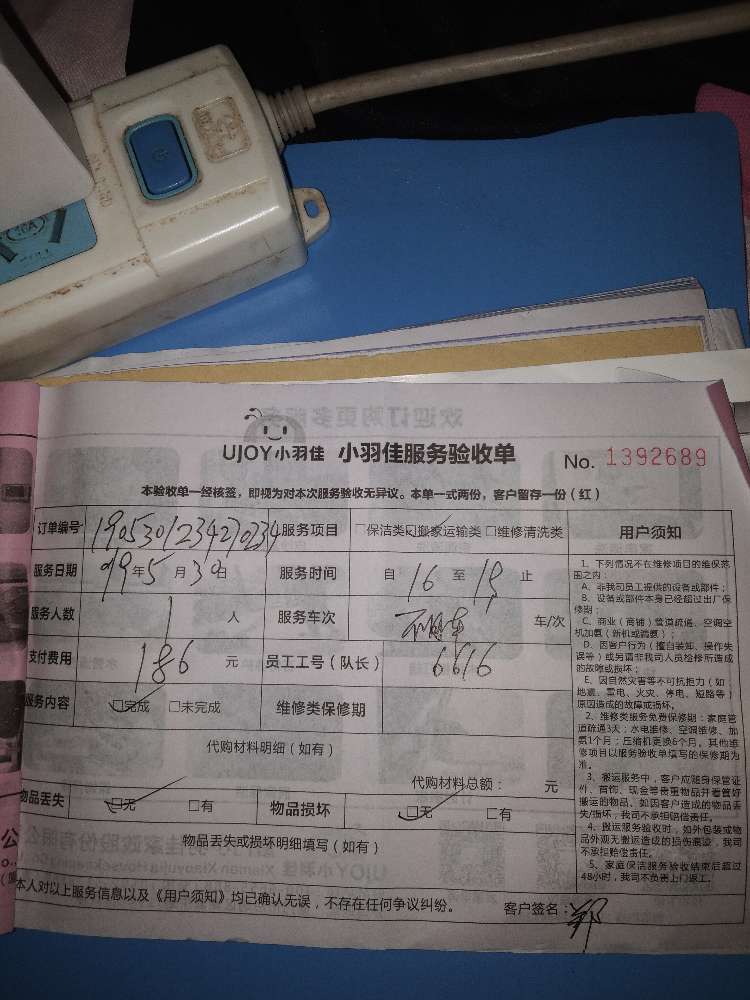 UJOY小羽佳 小羽佳服务验收单 No. 1392689
本验收单一经核签，即视为对本次服务验收无异议。本单一式两份，客户留存一份（红）
订单编号 1905301234270234 服务项目 □保洁类□搬家运输类 □维修清洗类
服务日期 19年5月30日 服务时间 自 16 至 18 止
服务人数 1 人 服务车次 车/次
支付费用 186 元 员工工号（队长） 6616
服务内容 □完成 □未完成 维修类保修期
代购材料明细（如有）
代购材料总额： 元
物品丢失 □无 □有 物品损坏 □无 □有
物品丢失或损坏明细填写（如有）
本人对以上服务信息以及《用户须知》均已确认无误，不存在任何争议纠纷。 客户签名：郑
用户须知
1、下列情况不在维修项目的维保范
围之内：
A、非我司员工提供的设备或部件；
B、设备或部件本身已经超过出厂保
修期；
C、商业（商铺）管道疏通、空调空
机加氨（新机或滴氨）；
D、因客户行为（擅自装卸、操作失
误等）或另请非我司人员检修所造成
的故障或损坏；
E、因自然灾害等不可抗拒力（如
地震、雷电、火灾、停电、短路等）
原因造成的故障或损坏。
2、维修类服务免费保修期：家庭管
道疏通3天；水电维修、空调维修、加
氨1个月；压缩机更换6个月。其他维
修项目以服务验收单填写的保修期为
准。
3、搬运服务中，客户应随身保管证
件、首饰、现金等贵重物品并看管好
搬运的物品。如因客户造成的物品丢
失/损坏，我司不承担赔偿责任。
4、搬运服务验收时，如外包装或物
品外观无搬运造成的损伤痕迹，我司
不承担赔偿责任。
5、家庭保洁服务验收结束后超过
48小时，我司不负责上门返工。